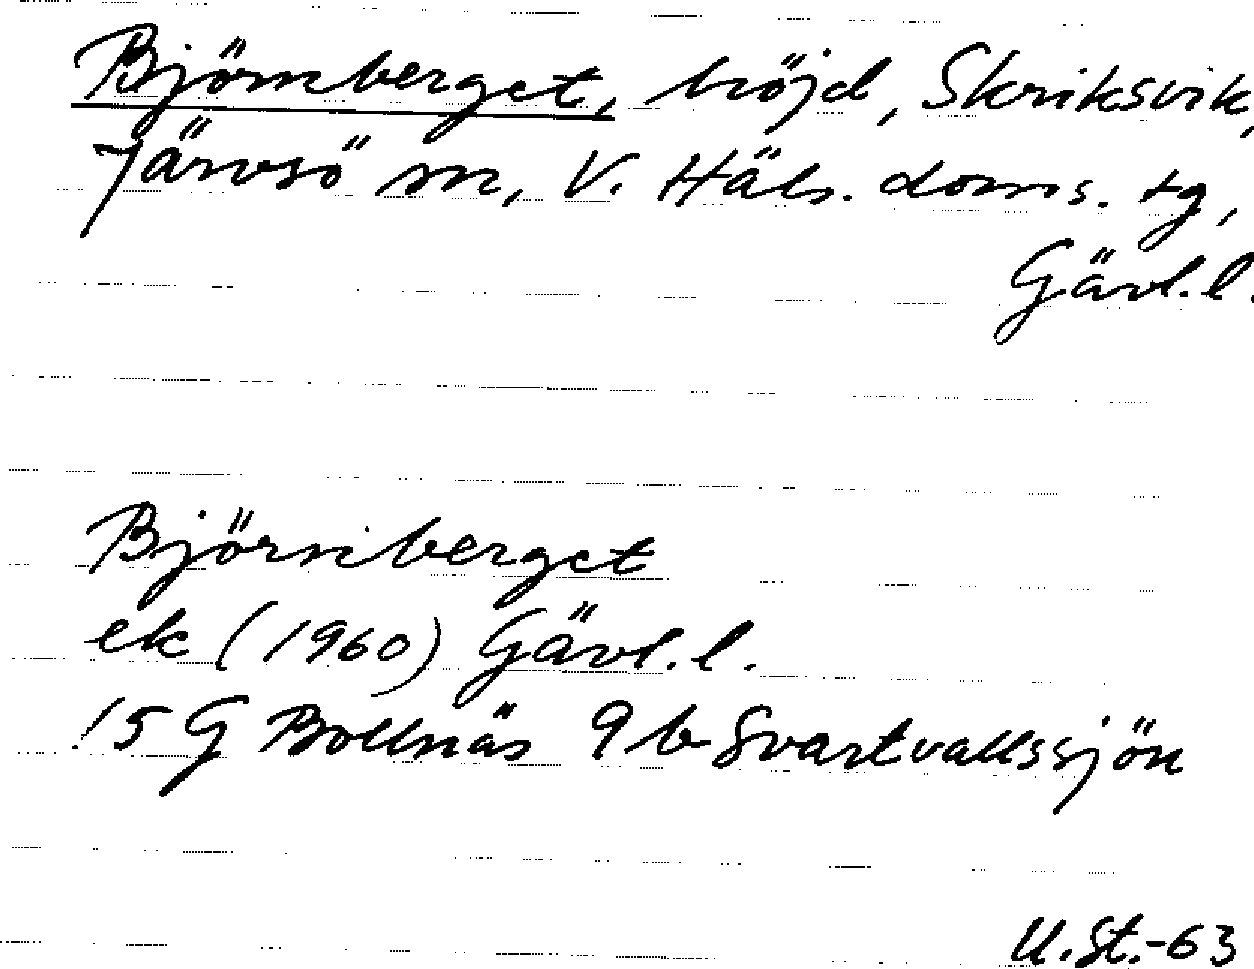 Björnberget, höjd, Skriksvik,
Järvsö sn, V. Häls. doms. tg,
Gävl.l.
Björnberget
ek (1960) Gävl.l.
15 G Bollnäs 9 b Svartvallssjön
U.St.-63